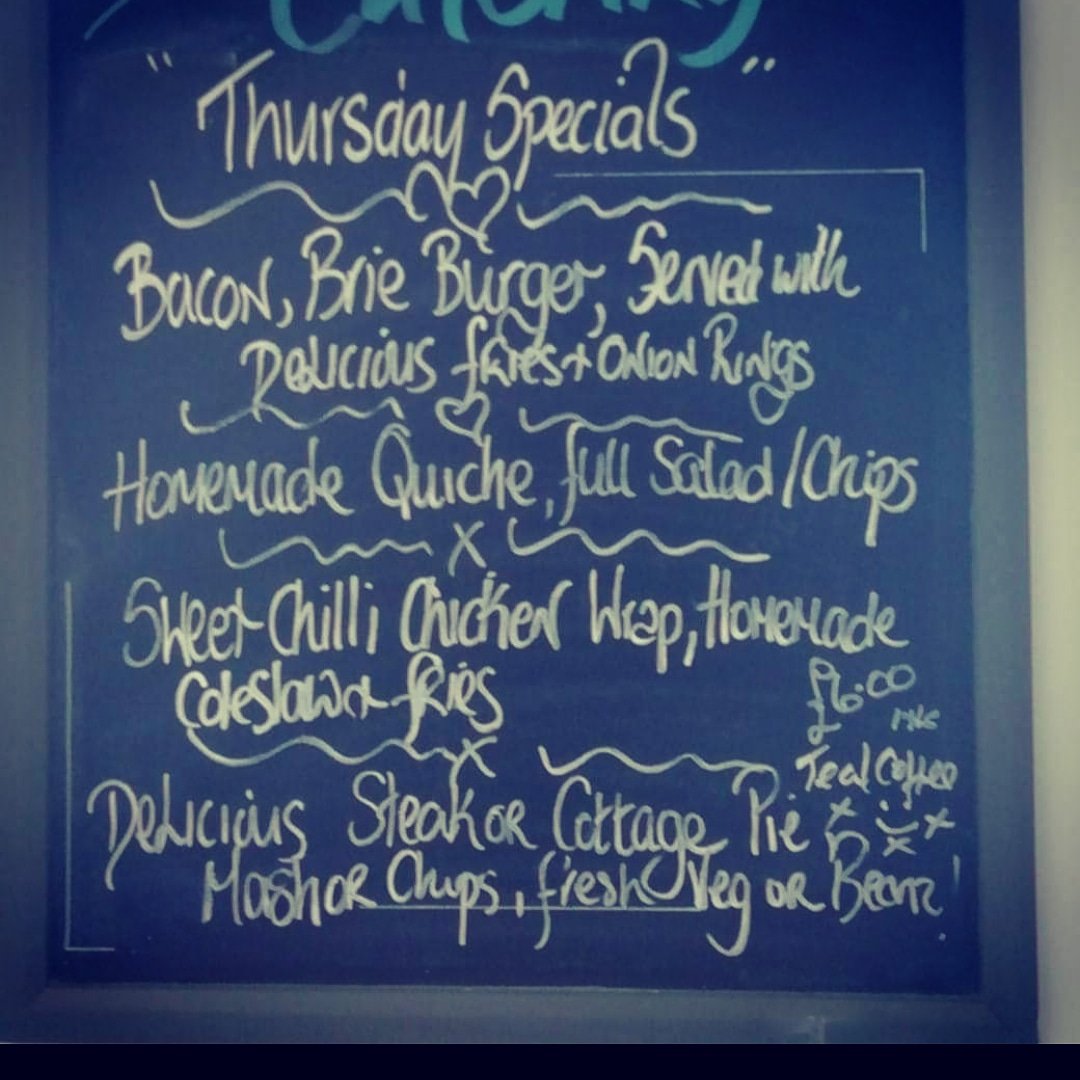 Catering
"Thursday Specials"
Bacon, Brie Burger, Served with
Delicious fries + Onion Rings
Homemade Quiche, full Salad/Chips
Sweet Chilli Chicken Wrap, Homemade
Coleslaw + fries
£6.00
inc
Tea/Coffee
Delicious Steak or Cottage Pie
Mash or Chips, fresh Veg or Beanz